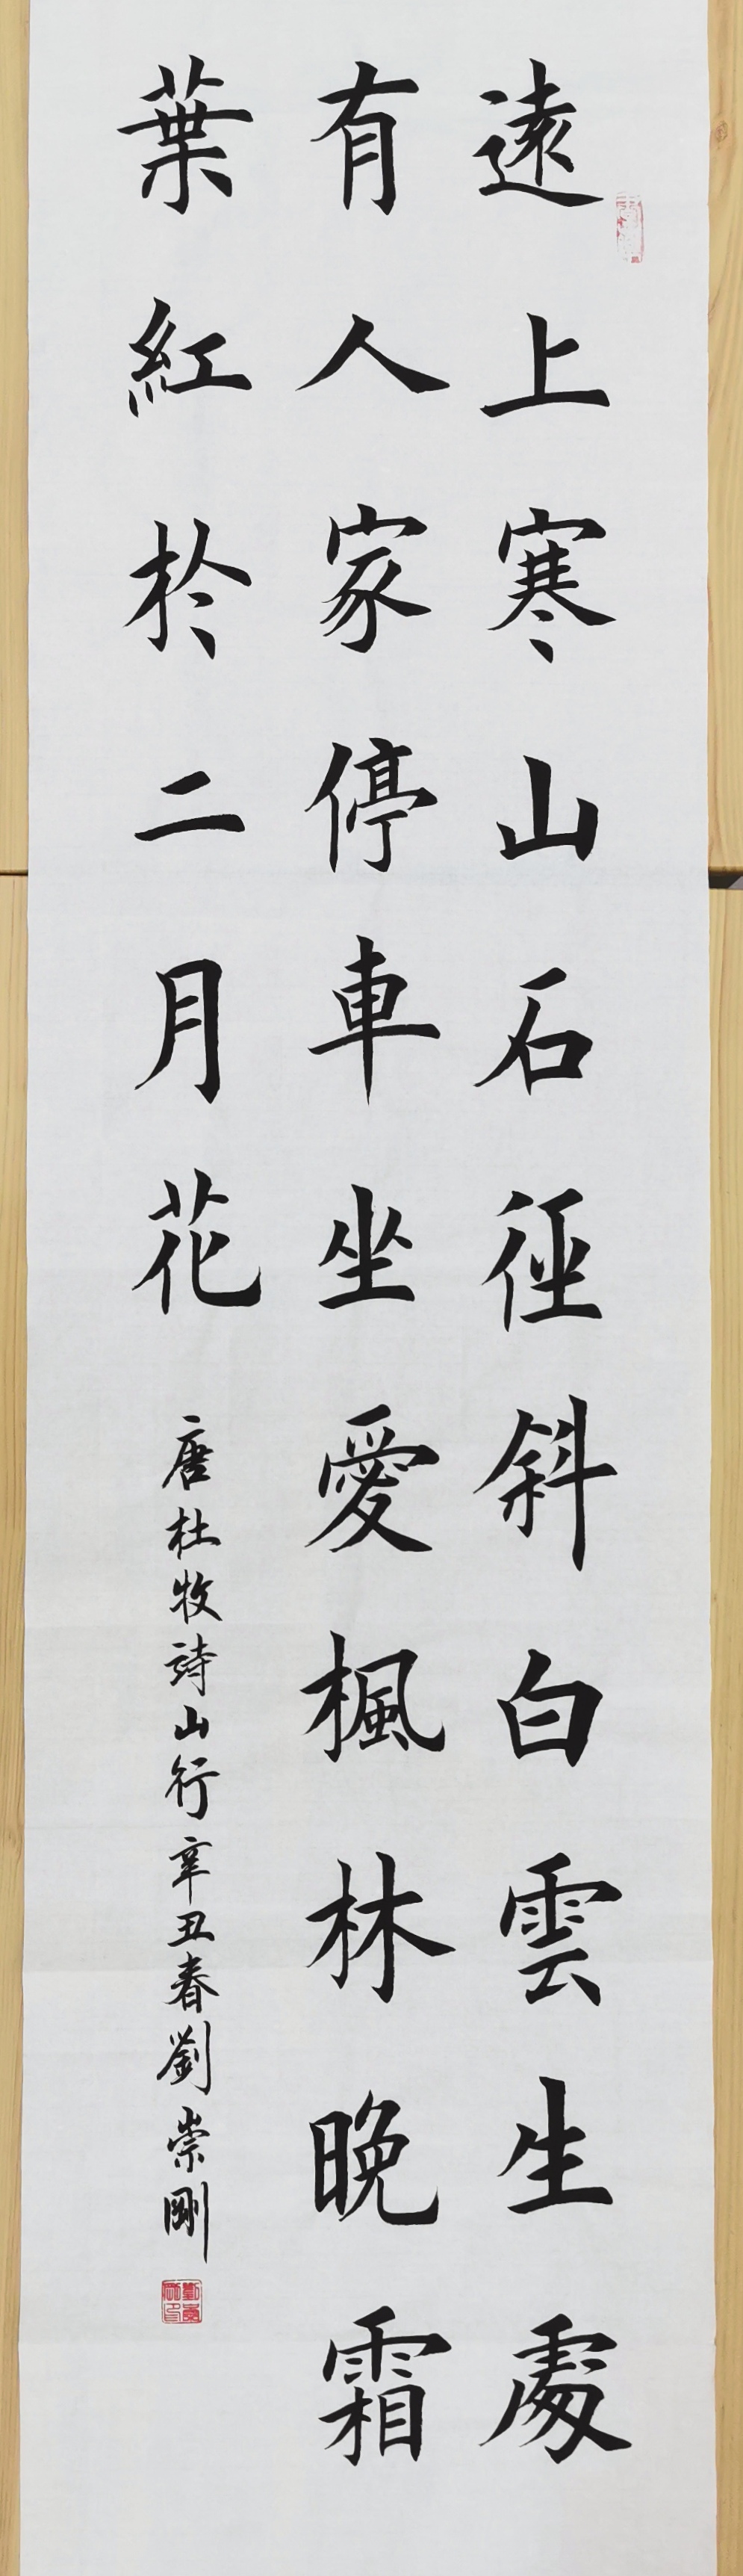 遠上寒山石徑斜白雲生處
有人家停車坐愛楓林晚霜
葉紅於二月花
唐杜牧詩山行辛丑春劉崇剛